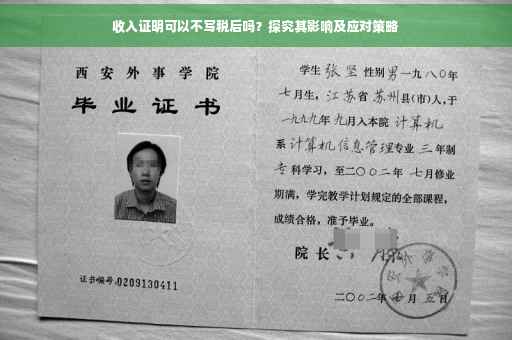 收入证明可以不写税后吗？探究其影响及应对策略
西安外事学院
毕业证书
证书编号:0209130411
学生 张坚 性别 男 一九八〇年
七月生，江苏省 苏州县(市)人，于
一九九九年 九月入本院 计算机
系 计算机信息管理专业 三 年制
专科学习，至二〇〇二年 七月修业
期满，学完教学计划规定的全部课程，
成绩合格，准予毕业。
院长
二〇〇二年 月五日